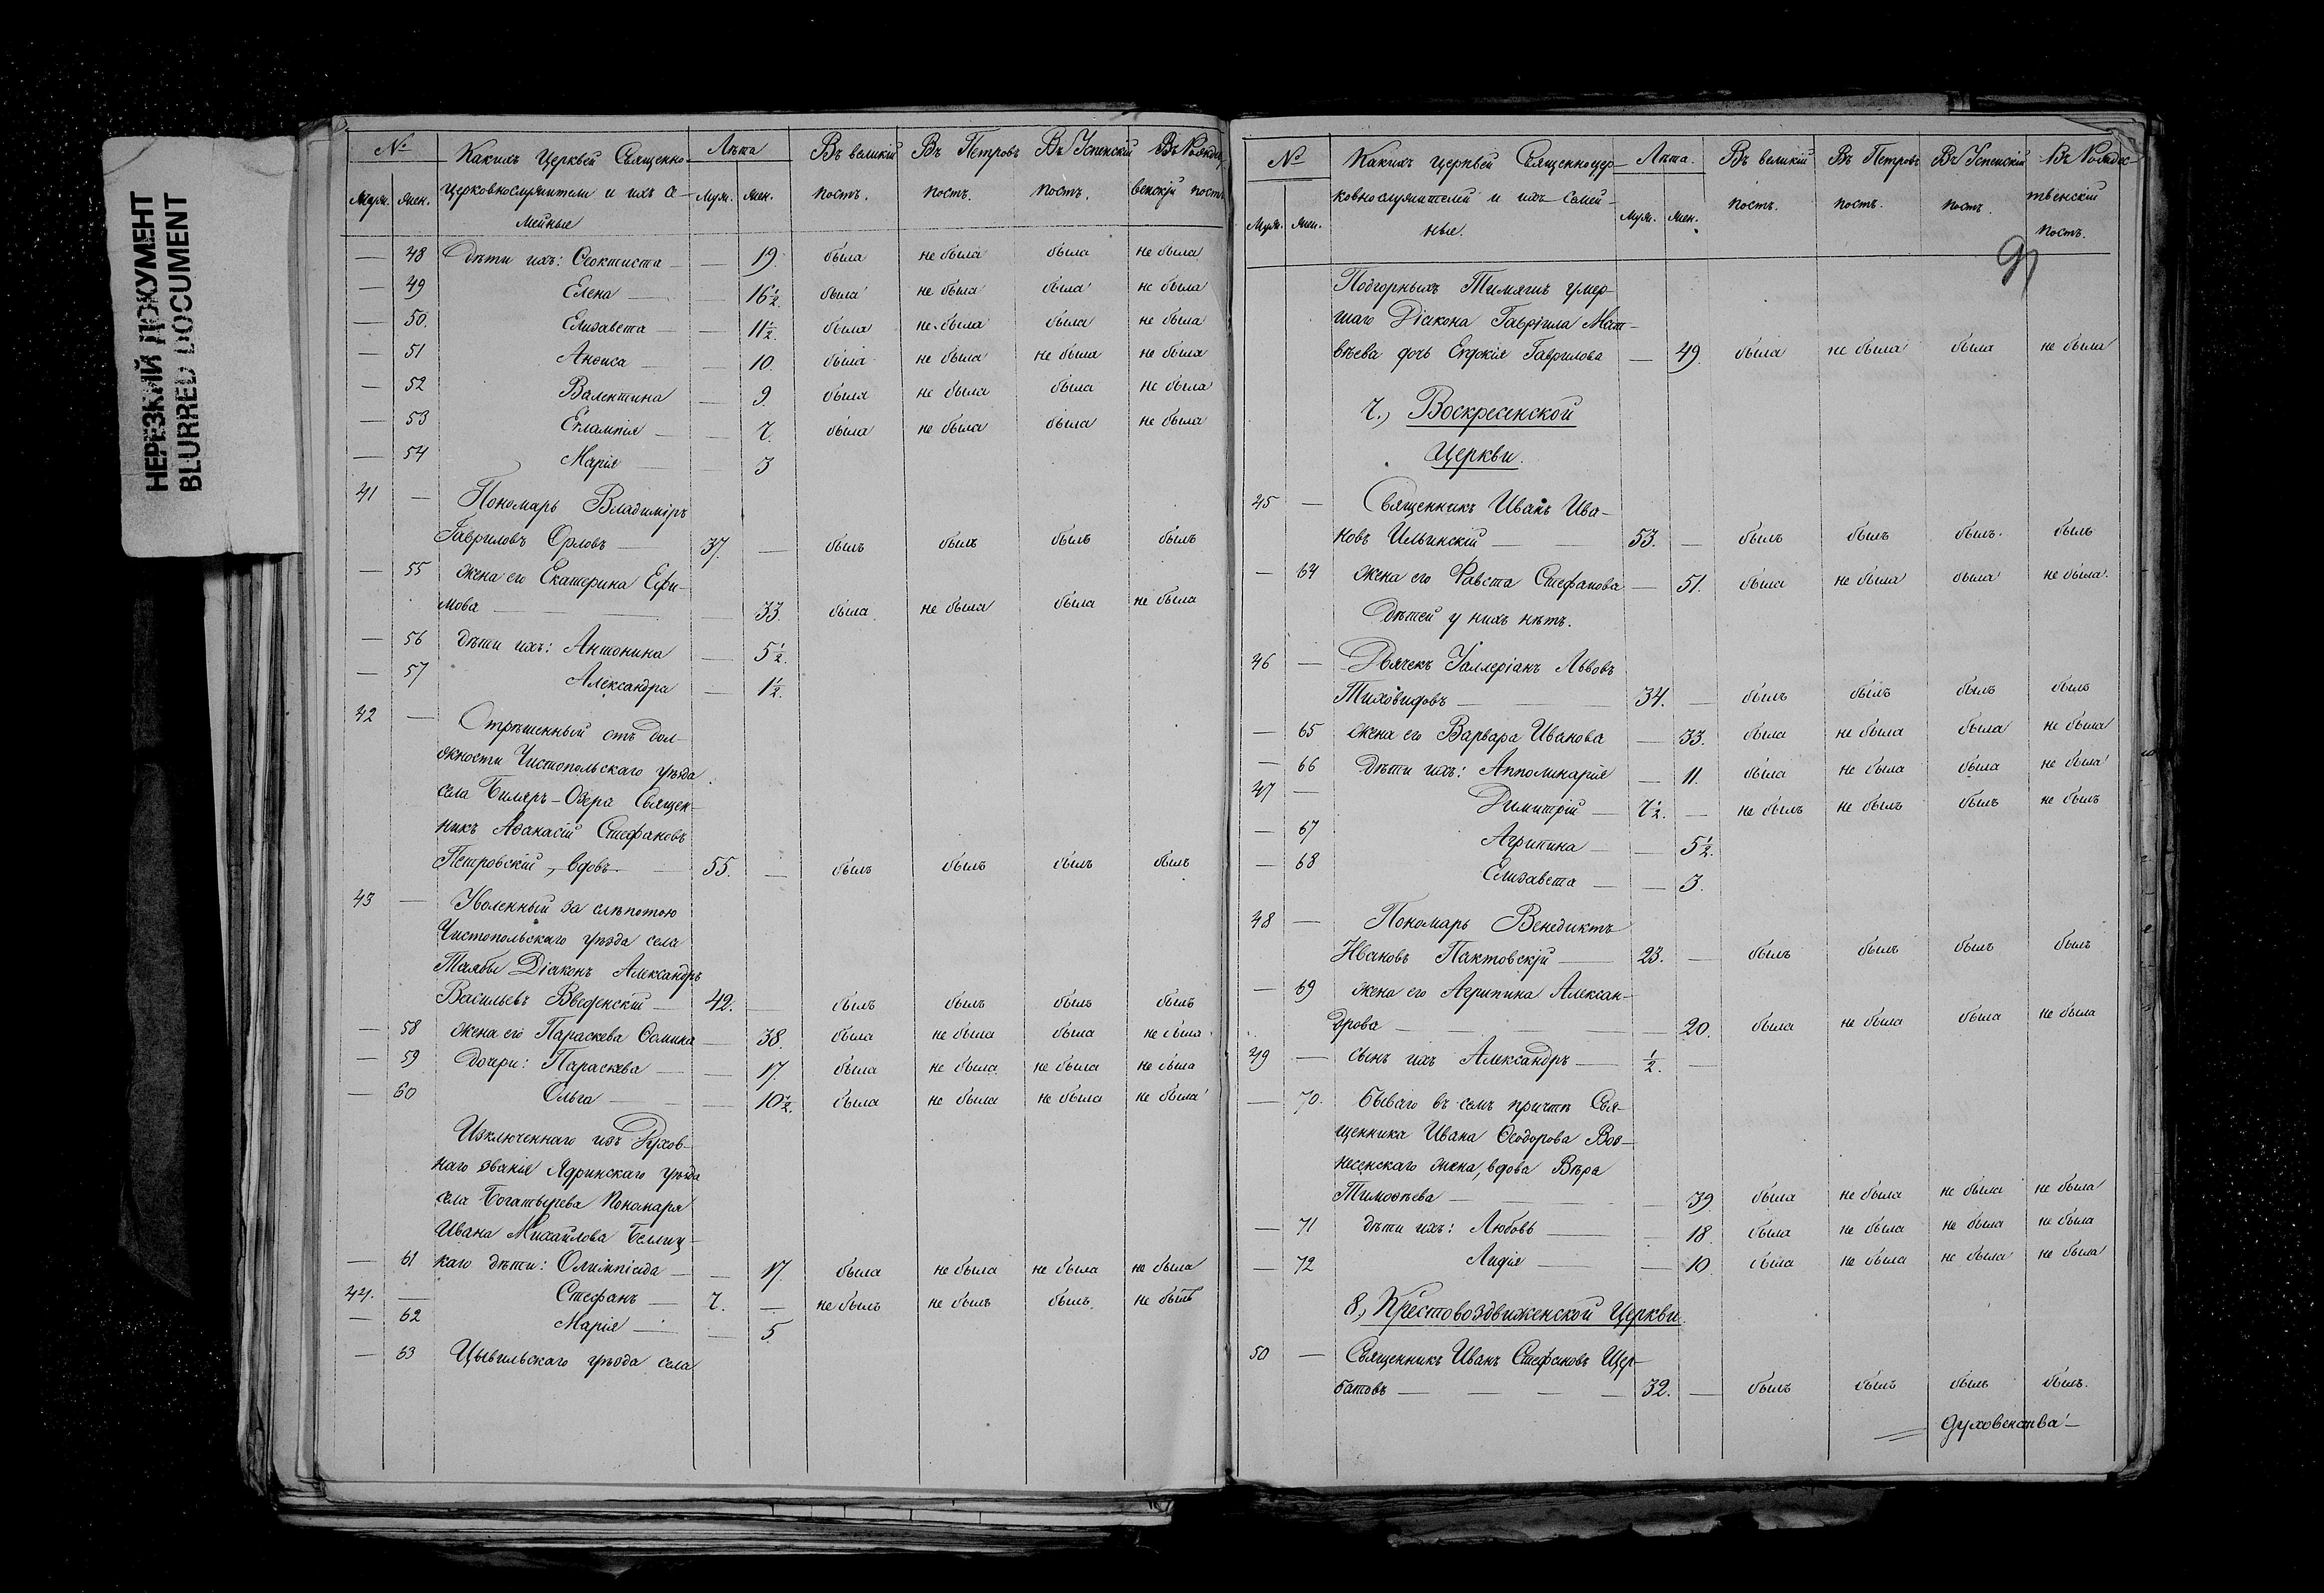 НЕРЕЗКИЙ ДОКУМЕНТ
BLURRED DOCUMENT
№ Какихъ Церквей Священно- Лѣта Въ великій Въ Петровъ Въ Успенскій Въ Рождес
Муж. Жен. церковнослужители и ихъ се- Муж. Жен. постъ. постъ. постъ. венскій постъ
мейные
— 48 Дѣти ихъ: Ѳеоктиста — — 19. была не была была не была
— 49 Елена — — 16½ была не была была не была
— 50. Елизавета — — 11½. была не была была не была
— 51 Анѳиса — — 10. была не была не была не была
— 52 Валентина — 9. была не была была не была
— 53 Евлампія — — 7. была не была была не была
— 54 Марія — — 3
41 — Пономарь Владиміръ
Гавриловъ Орловъ — 37. — былъ былъ былъ былъ
— 55 жена его Екатерина Ефи-
мова — — 33. была не была была не была
— 56 дѣти ихъ: Антонина — 5½.
— 57 Александра — 1½.
42 — Отрѣшенный отъ дол-
жности Чистопольскаго уѣзда
села Биляръ-Озера Священ-
никъ Аѳанасій Стефановъ
Петровскій, вдовъ — 55. — былъ былъ былъ былъ
43 — Уволенный за слѣпотою
Чистопольскаго уѣзда села
Таябы Діаконъ Александръ
Васильевъ Введенскій — 42. — былъ былъ былъ былъ
— 58 жена его Параскева Ѳомина — 38. была не была была не была
— 59 дочери: Параскева — — 17. была не была не была не была
— 60 Ольга — — 10½. была не была не была не была
Изключеннаго изъ Духов-
наго званія Ядринскаго уѣзда
села Богатырева Пономаря
Ивана Михайлова Беллиц-
— 61 каго дѣти: Олимпіада — — 17. была не была не была не была
44. — Стефанъ — 7. — не былъ не былъ былъ не былъ
— 62 Марія — — 5.
— 63 Цывильскаго уѣзда села
№ Какихъ церквей Священноцер- Лѣта. Въ великій Въ Петровъ Въ Успенскій Въ Рождес
Муж. Жен. ковнослужителей и ихъ семей- Муж. Жен. постъ. постъ. постъ. твенскій
ные. постъ.
Подгорныхъ Тимяшъ умер-
шаго Діакона Гавріила Мат-
вѣева дочь Евфжія Гаврилова — 49. была не была была не была
7., Воскресенской
Церкви.
45 — Священникъ Иванъ Ива-
новъ Ильинскій — 53. — былъ былъ былъ. былъ
— 64 жена его Фавста Стефанова — 51. была не была была не была.
Дѣтей у нихъ нѣтъ.
46 — Дьячекъ Уаллеріанъ Львовъ
Тиховидовъ — 34. — былъ былъ былъ былъ
— 65 жена его Варвара Иванова — 33. была не была была не была
— 66 дѣти ихъ: Апполинарія — 11. была не была была не была
47 — Димитрій — 7½. — не былъ не былъ былъ не былъ
— 67 Агрипина — — 5½.
— 68 Елизавета — — 3.
48 — Пономарь Венедиктъ
Ивановъ Пактовскій — 23. — былъ былъ былъ былъ
— 69 жена его Агрипина Алексан-
дрова — — 20. была не была была не была
49 — сынъ ихъ Александръ — ½. —
— 70. Бываго въ семъ причтѣ Свя-
щенника Ивана Ѳеодорова Воз-
несенскаго жена, вдова Вѣра
Тимоѳѣева — — 39. была не была не была не была
— 71 дѣти ихъ: Любовь — — 18. была не была не была не была
— 72 Лидія — — 10. была не была не была не была
8., Крестовоздвиженской Церкви.
50 — Священникъ Иванъ Стефановъ Щер-
батовъ — 32. — былъ былъ былъ былъ.
духовенства